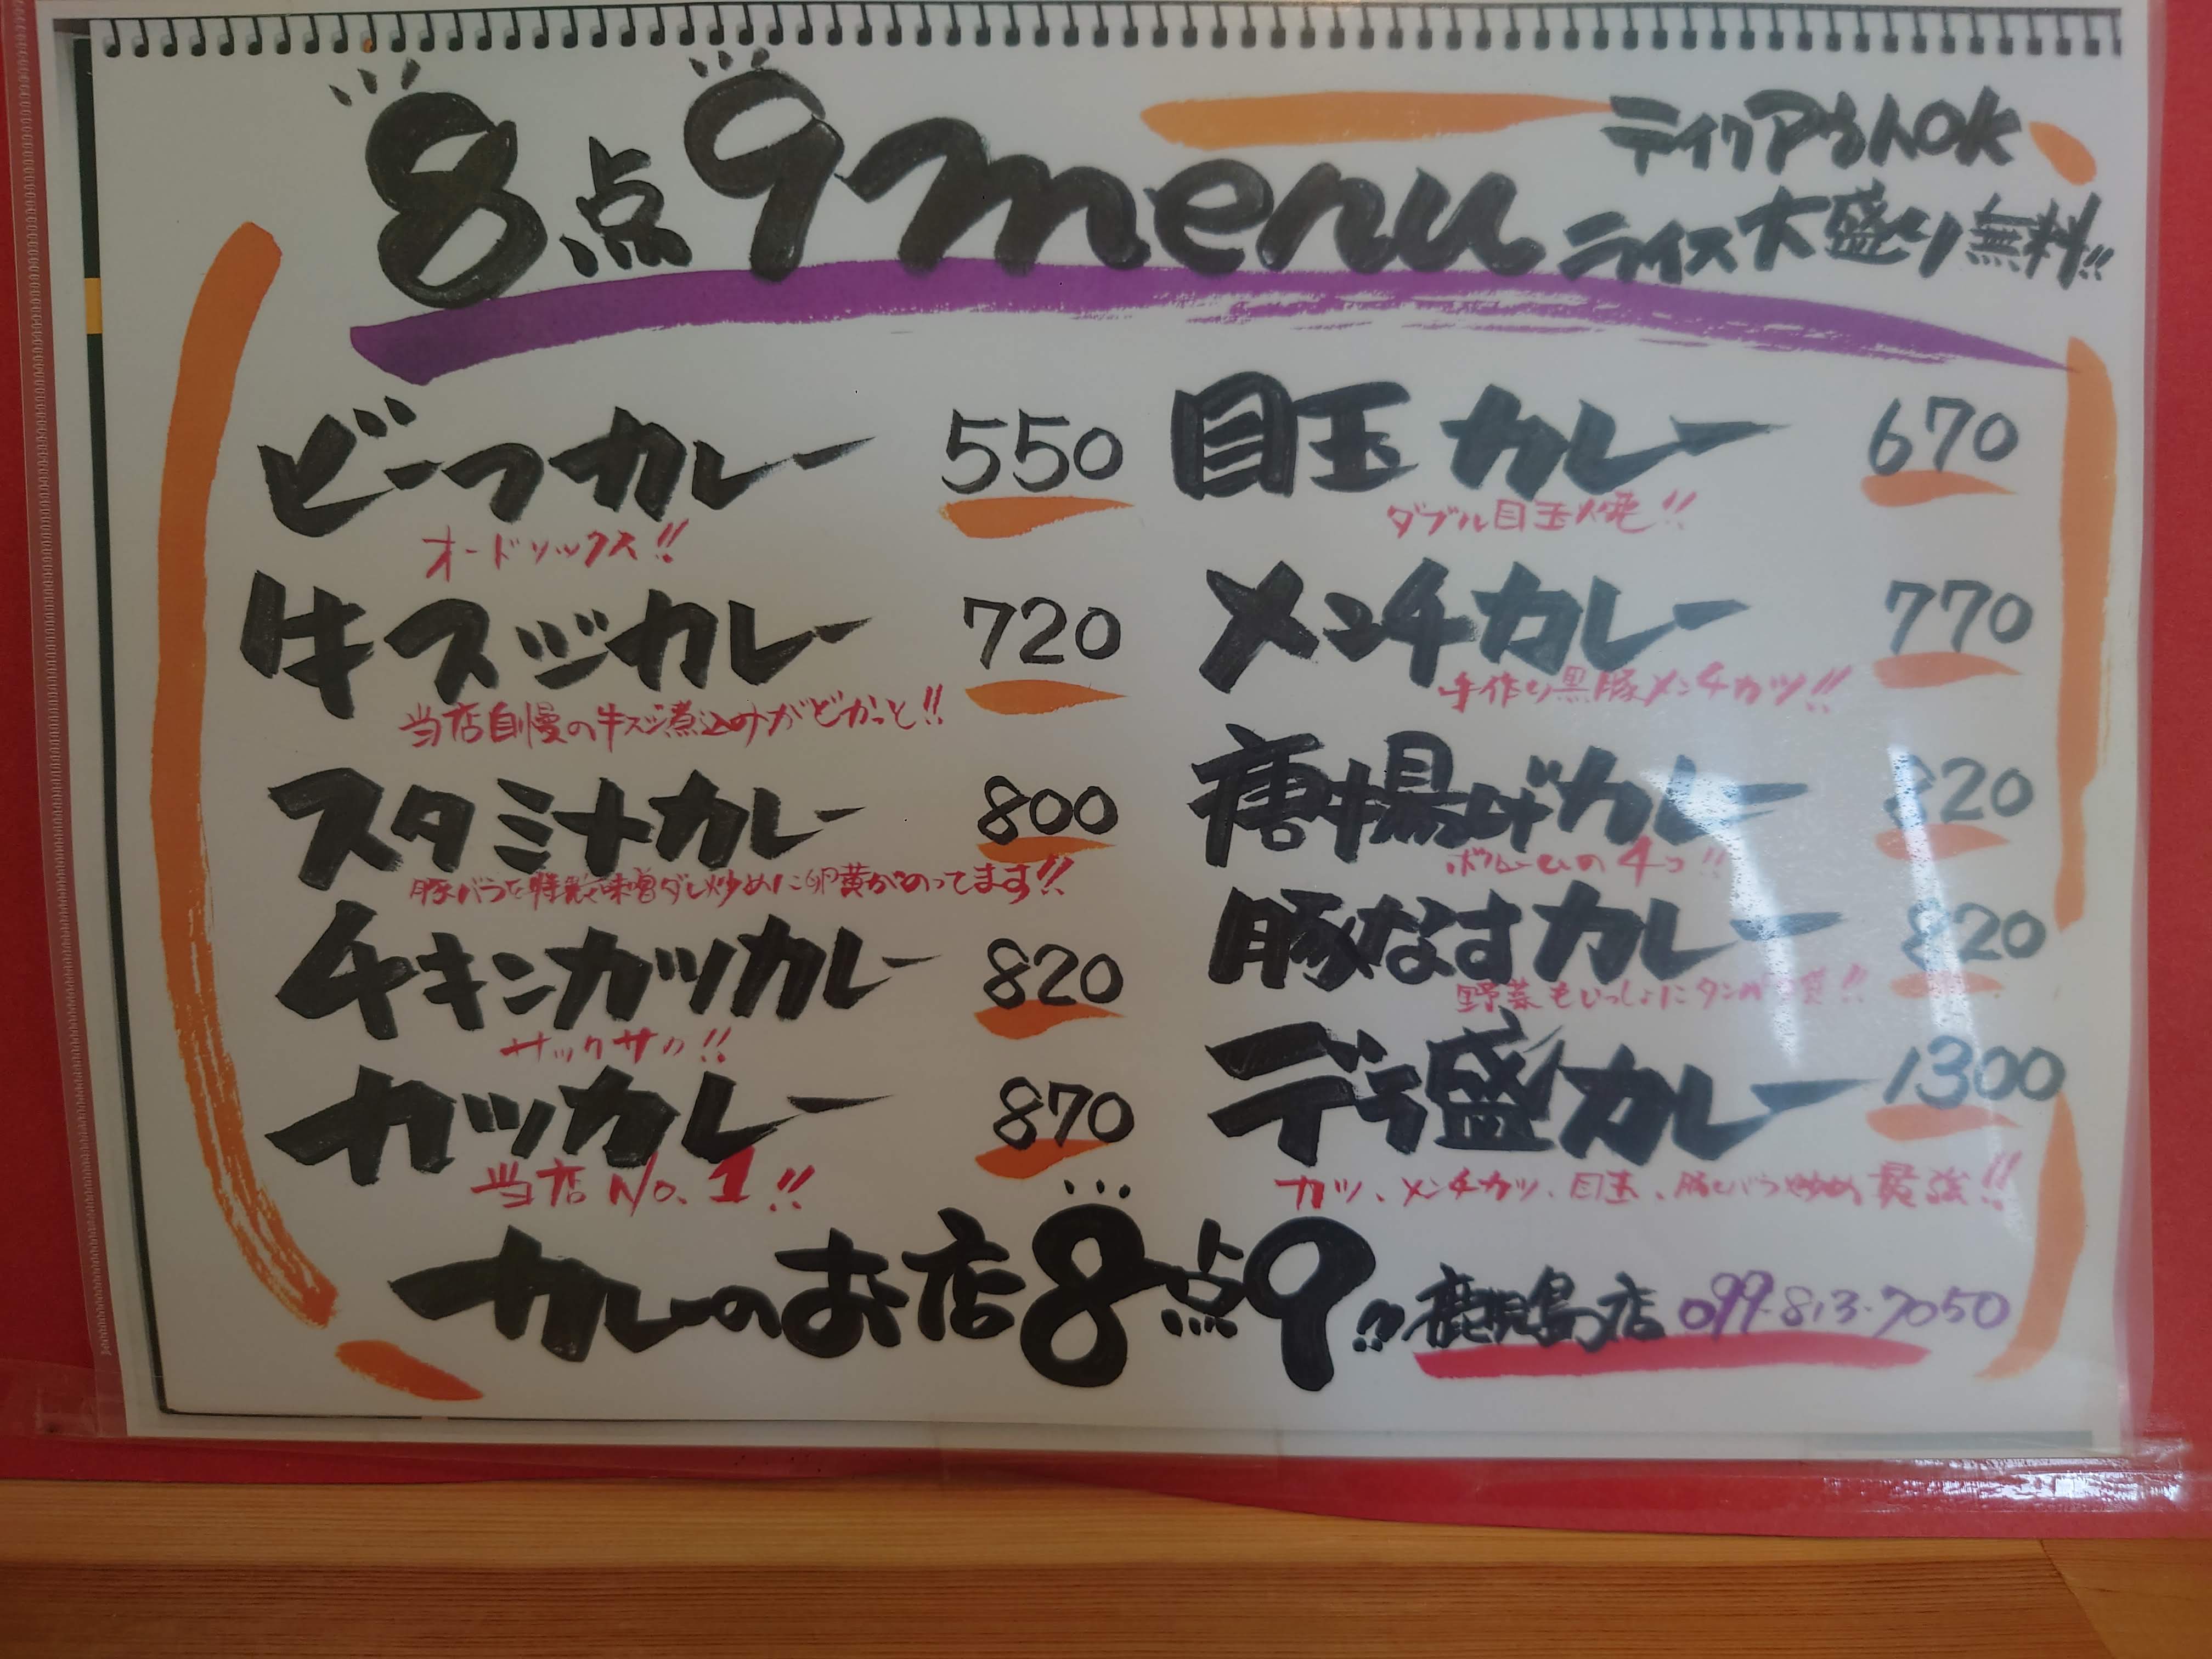 8点9menu
テイクアウトOK
ライス大盛り無料!!
ビーフカレー 550
オードソックス!!
牛スジカレー 720
当店自慢の牛スジ煮込みがどかっと!!
スタミナカレー 800
豚バラを特製味噌ダレ炒めに卵黄がのってます!!
チキンカツカレー 820
サックサク!!
カツカレー 870
当店No.1!!
目玉カレー 670
ダブル目玉焼!!
メンチカレー 770
手作り黒豚メンチカツ!!
唐揚げカレー 820
の4コ!!
豚なすカレー 820
野菜もいっしょに
デラ盛カレー 1300
カツ、メンチカツ、目玉、豚バラ炒め 最強!!
カレーのお店8点9!!鹿児島店 099-813-7050